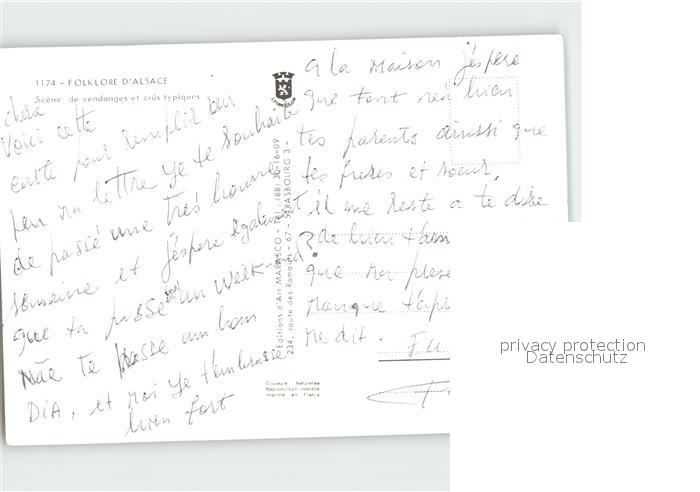 1174 – FOLKLORE D'ALSACE
Scène de vendanges et crûs typiques
chère
Voici cette
carte pour remplir un
peu ma lettre Je te souhaite
de passé une très bonne
semaine et J'éspere également
que ta passé un bon week-end?
Mãe te passe un bon
DIA, et moi Je t'embrasse
bien fort
LA CIGOGNE
Editions d'Art MARASCO - Tél. (88) 30-16-09
234, route des Romains - 67 - STRASBOURG 3 -
Couleurs Naturelles
Reproduction interdite
Imprimé en France
a la maison J'éspere
que tont va bien
tes parents ainsi que
tes freres et soeur,
il me reste a te dire
de bien t'am
que ma prese
manque
me dit.
privacy protection
Datenschutz